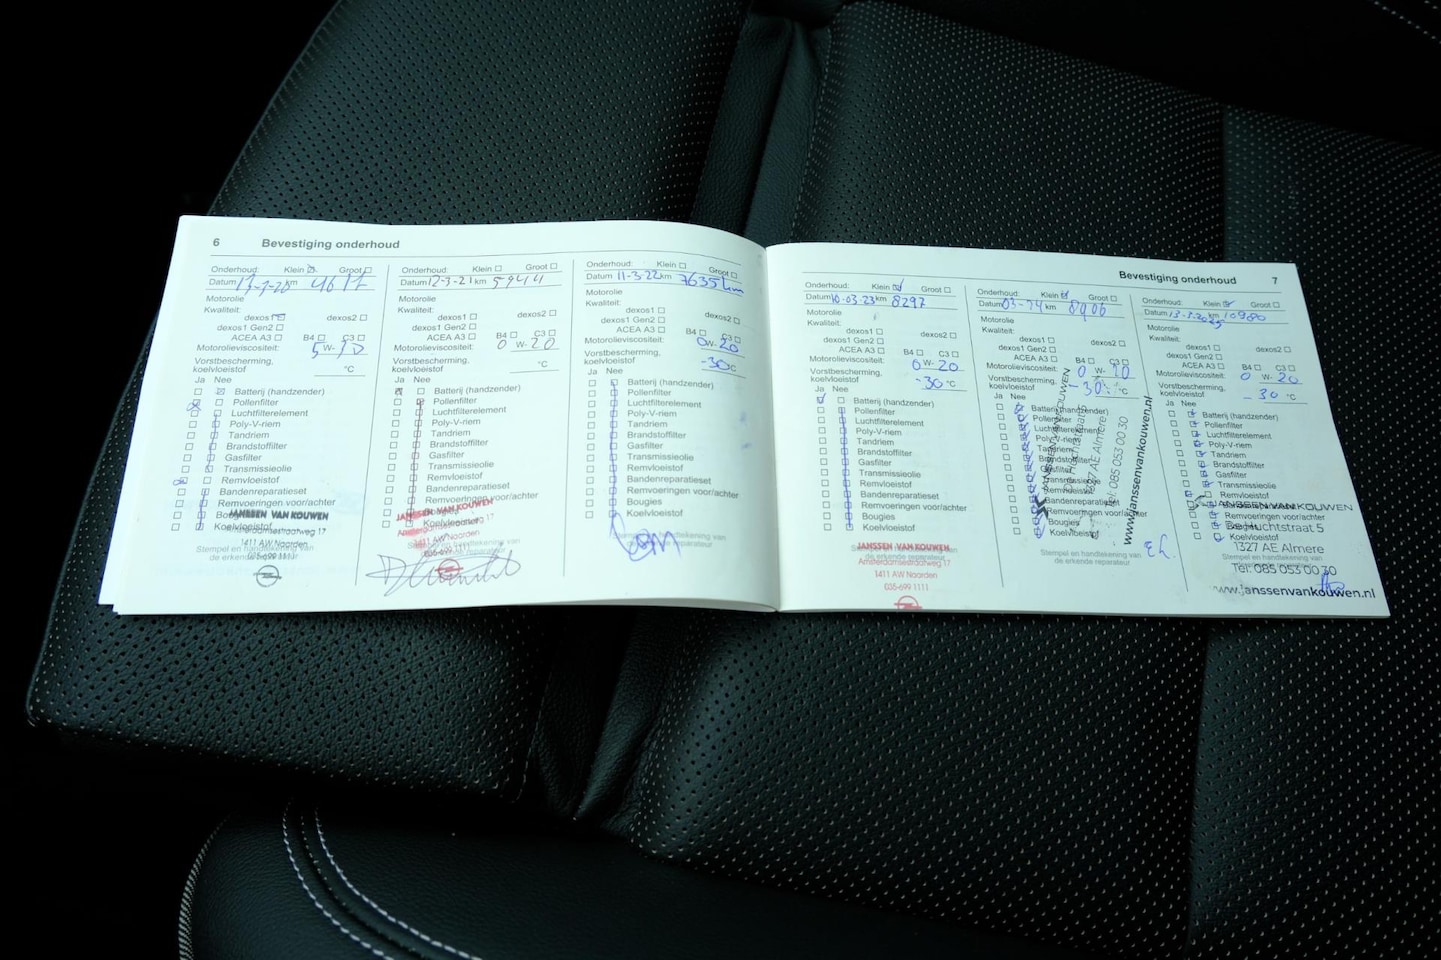 6 Bevestiging onderhoud
Onderhoud: Klein Groot
Datum km
Motorolie
Kwaliteit:
dexos1 dexos2
dexos1 Gen2
ACEA A3 B4 C3
Motorolieviscositeit: 5 W-
Vorstbescherming,
koelvloeistof °C
Ja Nee
Batterij (handzender)
Pollenfilter
Luchtfilterelement
Poly-V-riem
Tandriem
Brandstoffilter
Gasfilter
Transmissieolie
Remvloeistof
Bandenreparatieset
Remvoeringen voor/achter
Koelvloeistof
JANSSEN VAN KOUWEN
Amsterdamsestraatweg 17
1411 AW Naarden
035-699 1111
Stempel en handtekening van
de erkende reparateur
Onderhoud: Klein Groot
Datum 12-3-21 km 5944
Motorolie
Kwaliteit:
dexos1 dexos2
dexos1 Gen2
ACEA A3 B4 C3
Motorolieviscositeit: 0 W-20
Vorstbescherming,
koelvloeistof °C
Ja Nee
Batterij (handzender)
Pollenfilter
Luchtfilterelement
Poly-V-riem
Tandriem
Brandstoffilter
Gasfilter
Transmissieolie
Remvloeistof
Bandenreparatieset
Remvoeringen voor/achter
Koelvloeistof
JANSSEN VAN KOUWEN
Amsterdamsestraatweg 17
1411 AW Naarden
035-699 1111
Onderhoud: Klein Groot
Datum 11-3-22 km 7635 km
Motorolie
Kwaliteit:
dexos1 dexos2
dexos1 Gen2
ACEA A3 B4 C3
Motorolieviscositeit: 0 W-20
Vorstbescherming,
koelvloeistof -30°C
Ja Nee
Batterij (handzender)
Pollenfilter
Luchtfilterelement
Poly-V-riem
Tandriem
Brandstoffilter
Gasfilter
Transmissieolie
Remvloeistof
Bandenreparatieset
Remvoeringen voor/achter
Bougies
Koelvloeistof
Bevestiging onderhoud 7
Onderhoud: Klein Groot
Datum 10-03-23 km 8297
Motorolie
Kwaliteit:
dexos1 dexos2
dexos1 Gen2
ACEA A3 B4 C3
Motorolieviscositeit: 0 W-20
Vorstbescherming,
koelvloeistof -30 °C
Ja Nee
Batterij (handzender)
Pollenfilter
Luchtfilterelement
Poly-V-riem
Tandriem
Brandstoffilter
Gasfilter
Transmissieolie
Remvloeistof
Bandenreparatieset
Remvoeringen voor/achter
Bougies
Koelvloeistof
JANSSEN VAN KOUWEN
de erkende reparateur
Amsterdamsestraatweg 17
1411 AW Naarden
035-699 1111
Onderhoud: Klein Groot
Datum 03- km
Motorolie
Kwaliteit:
dexos1 dexos2
dexos1 Gen2
ACEA A3 B4 C3
Motorolieviscositeit: 0 W-
Vorstbescherming,
koelvloeistof -30 °C
Ja Nee
Batterij (handzender)
Pollenfilter
Luchtfilterelement
Poly-V-riem
Tandriem
Brandstoffilter
Gasfilter
Transmissieolie
Remvloeistof
Bandenreparatieset
Remvoeringen voor/achter
Bougies
Koelvloeistof
JANSSEN VAN KOUWEN
1327 AE Almere
Tel: 085 053 00 30
www.janssenvankouwen.nl
Stempel en handtekening van
de erkende reparateur
Onderhoud: Klein Groot
Datum 13-3-2025 km 10980
Motorolie
Kwaliteit:
dexos1 dexos2
dexos1 Gen2
ACEA A3 B4 C3
Motorolieviscositeit: 0 W-20
Vorstbescherming,
koelvloeistof -30 °C
Ja Nee
Batterij (handzender)
Pollenfilter
Luchtfilterelement
Poly-V-riem
Tandriem
Brandstoffilter
Gasfilter
Transmissieolie
Remvloeistof
Bandenreparatieset
JANSSEN VAN KOUWEN
Remvoeringen voor/achter
Bougies
De Huchtstraat 5
Koelvloeistof
1327 AE Almere
Stempel en handtekening van
Tel: 085 053 00 30
www.janssenvankouwen.nl